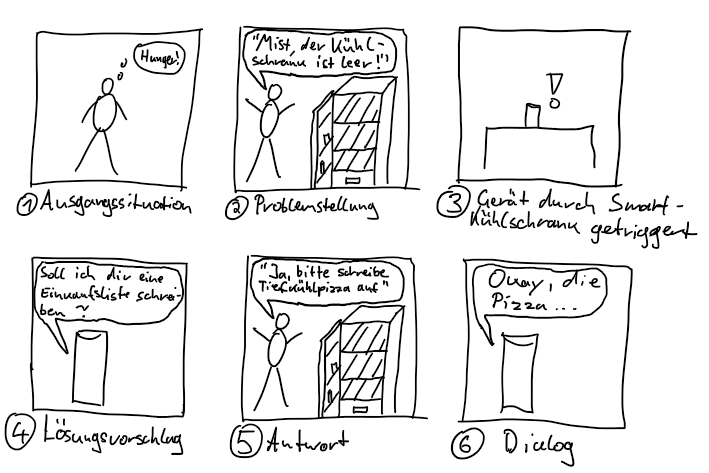 Hunger!
① Ausgangssituation
"Mist, der Kühl-
schrank ist leer!"
② Problemstellung
!
③ Gerät durch Smart-
Kühlschrank getriggert
Soll ich dir eine
Einkaufsliste schrei-
ben ~
④ Lösungsvorschlag
"Ja, bitte schreibe
Tiefkühlpizza auf"
⑤ Antwort
Okay, die
Pizza...
⑥ Dialog